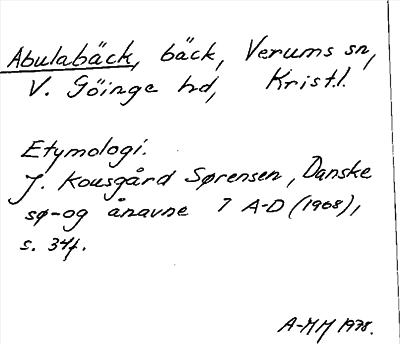 Abulabäck, bäck, Verums sn,
V. Göinge hd, Krist.l.
Etymologi.
J. Kousgård Sørensen, Danske
sø- og ånavne 1 A-D (1968),
s. 34f.
A-MM 1978.